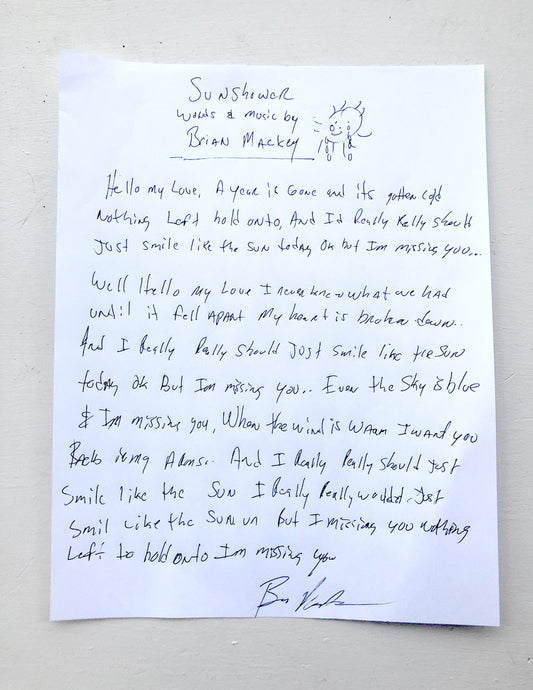 Sunshower
Words & Music by
Brian Mackey
Hello my Love, A year is Gone and its gotten cold
Nothing Left hold onto, And I'd Really Really should
Just smile like the sun today Ok but Im missing you...
Well Hello my Love I never knew what we had
until it fell apart my heart is broken down..
And I Really Really should Just smile like the sun
today ok But Im missing you.. Even the Sky is blue
& Im missing you, When the wind is warm I want you
Back in my Arms. And I Really Really should just
Smile like the Sun I Really Really would Just
Smil Like the Sun But I missing you nothing
Left to hold onto Im missing you